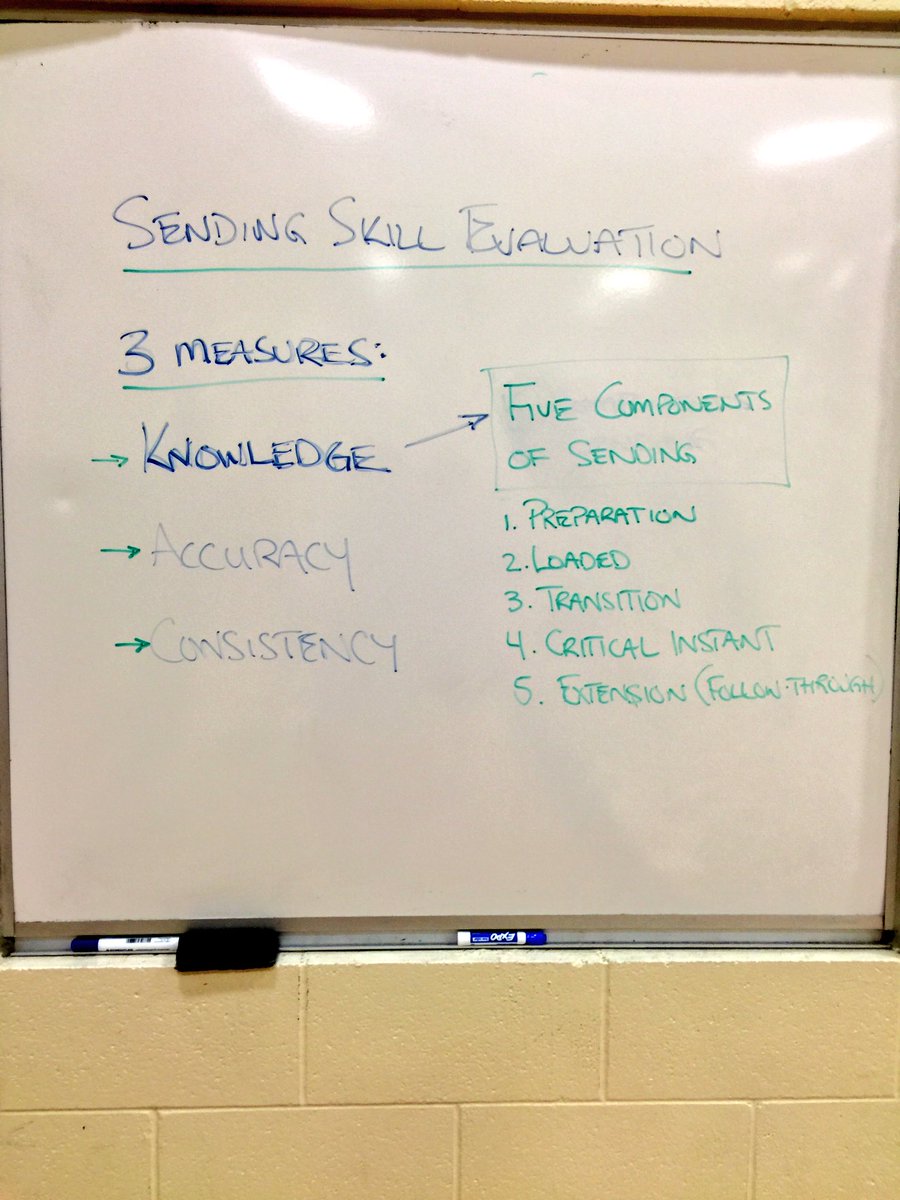 SENDING SKILL EVALUATION
3 MEASURES:
→ KNOWLEDGE
→ ACCURACY
→ CONSISTENCY
FIVE COMPONENTS
OF SENDING
1. PREPARATION
2. LOADED
3. TRANSITION
4. CRITICAL INSTANT
5. EXTENSION (FOLLOW-THROUGH)
EXPO